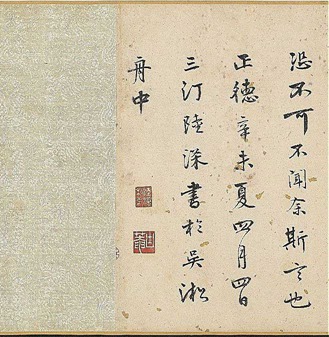 恐不可不闻余斯言也
正德辛未夏四月四日
三汀陸深書於吳淞
舟中